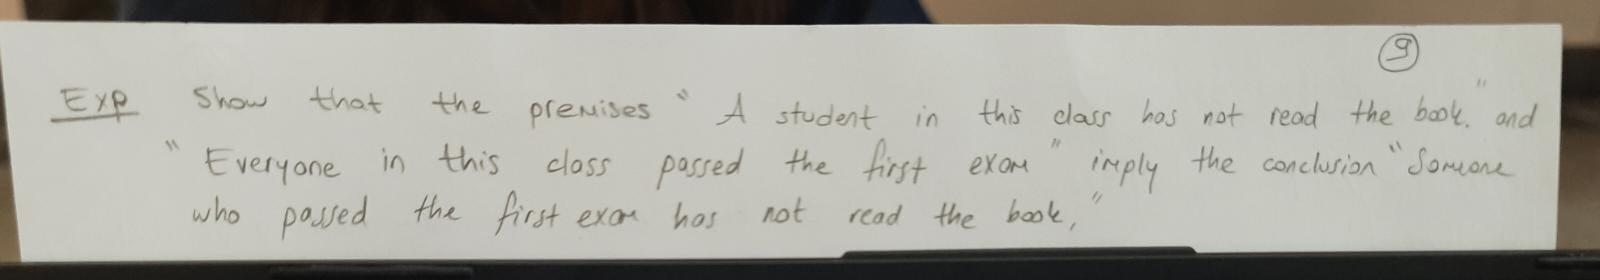 9
Exp Show that the premises "A student in this class has not read the book." and
"Everyone in this class passed the first exam" imply the conclusion "Someone
who passed the first exam has not read the book,"